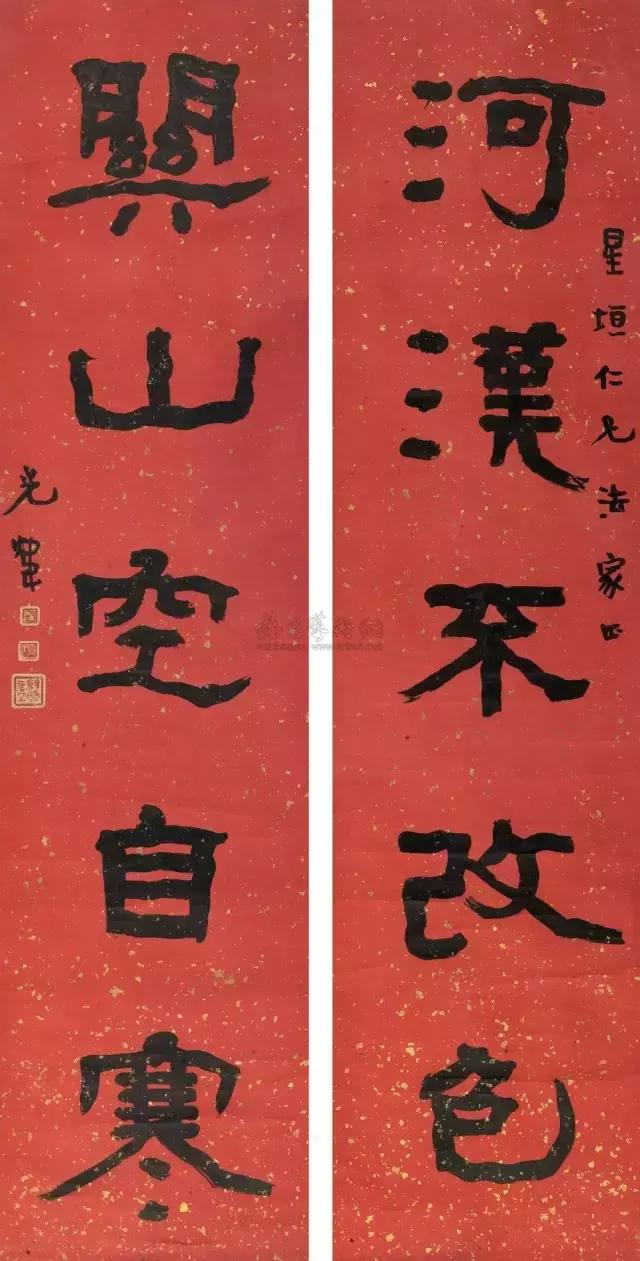 星垣仁兄法家正
河漢不改色
關山空自寒
光煒